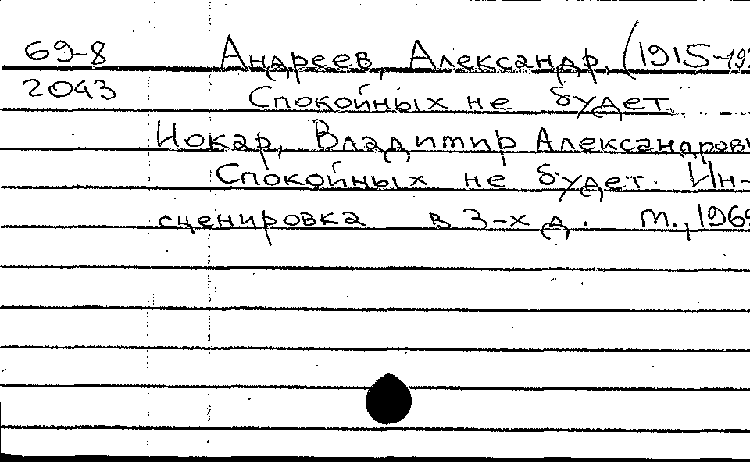 69-8 Андреев, Александр. (1915-19
2043 Спокойных не будет.
Иокар, Владимир Александрови
Спокойных не будет. Ин-
сценировка в 3-х д. М., 196